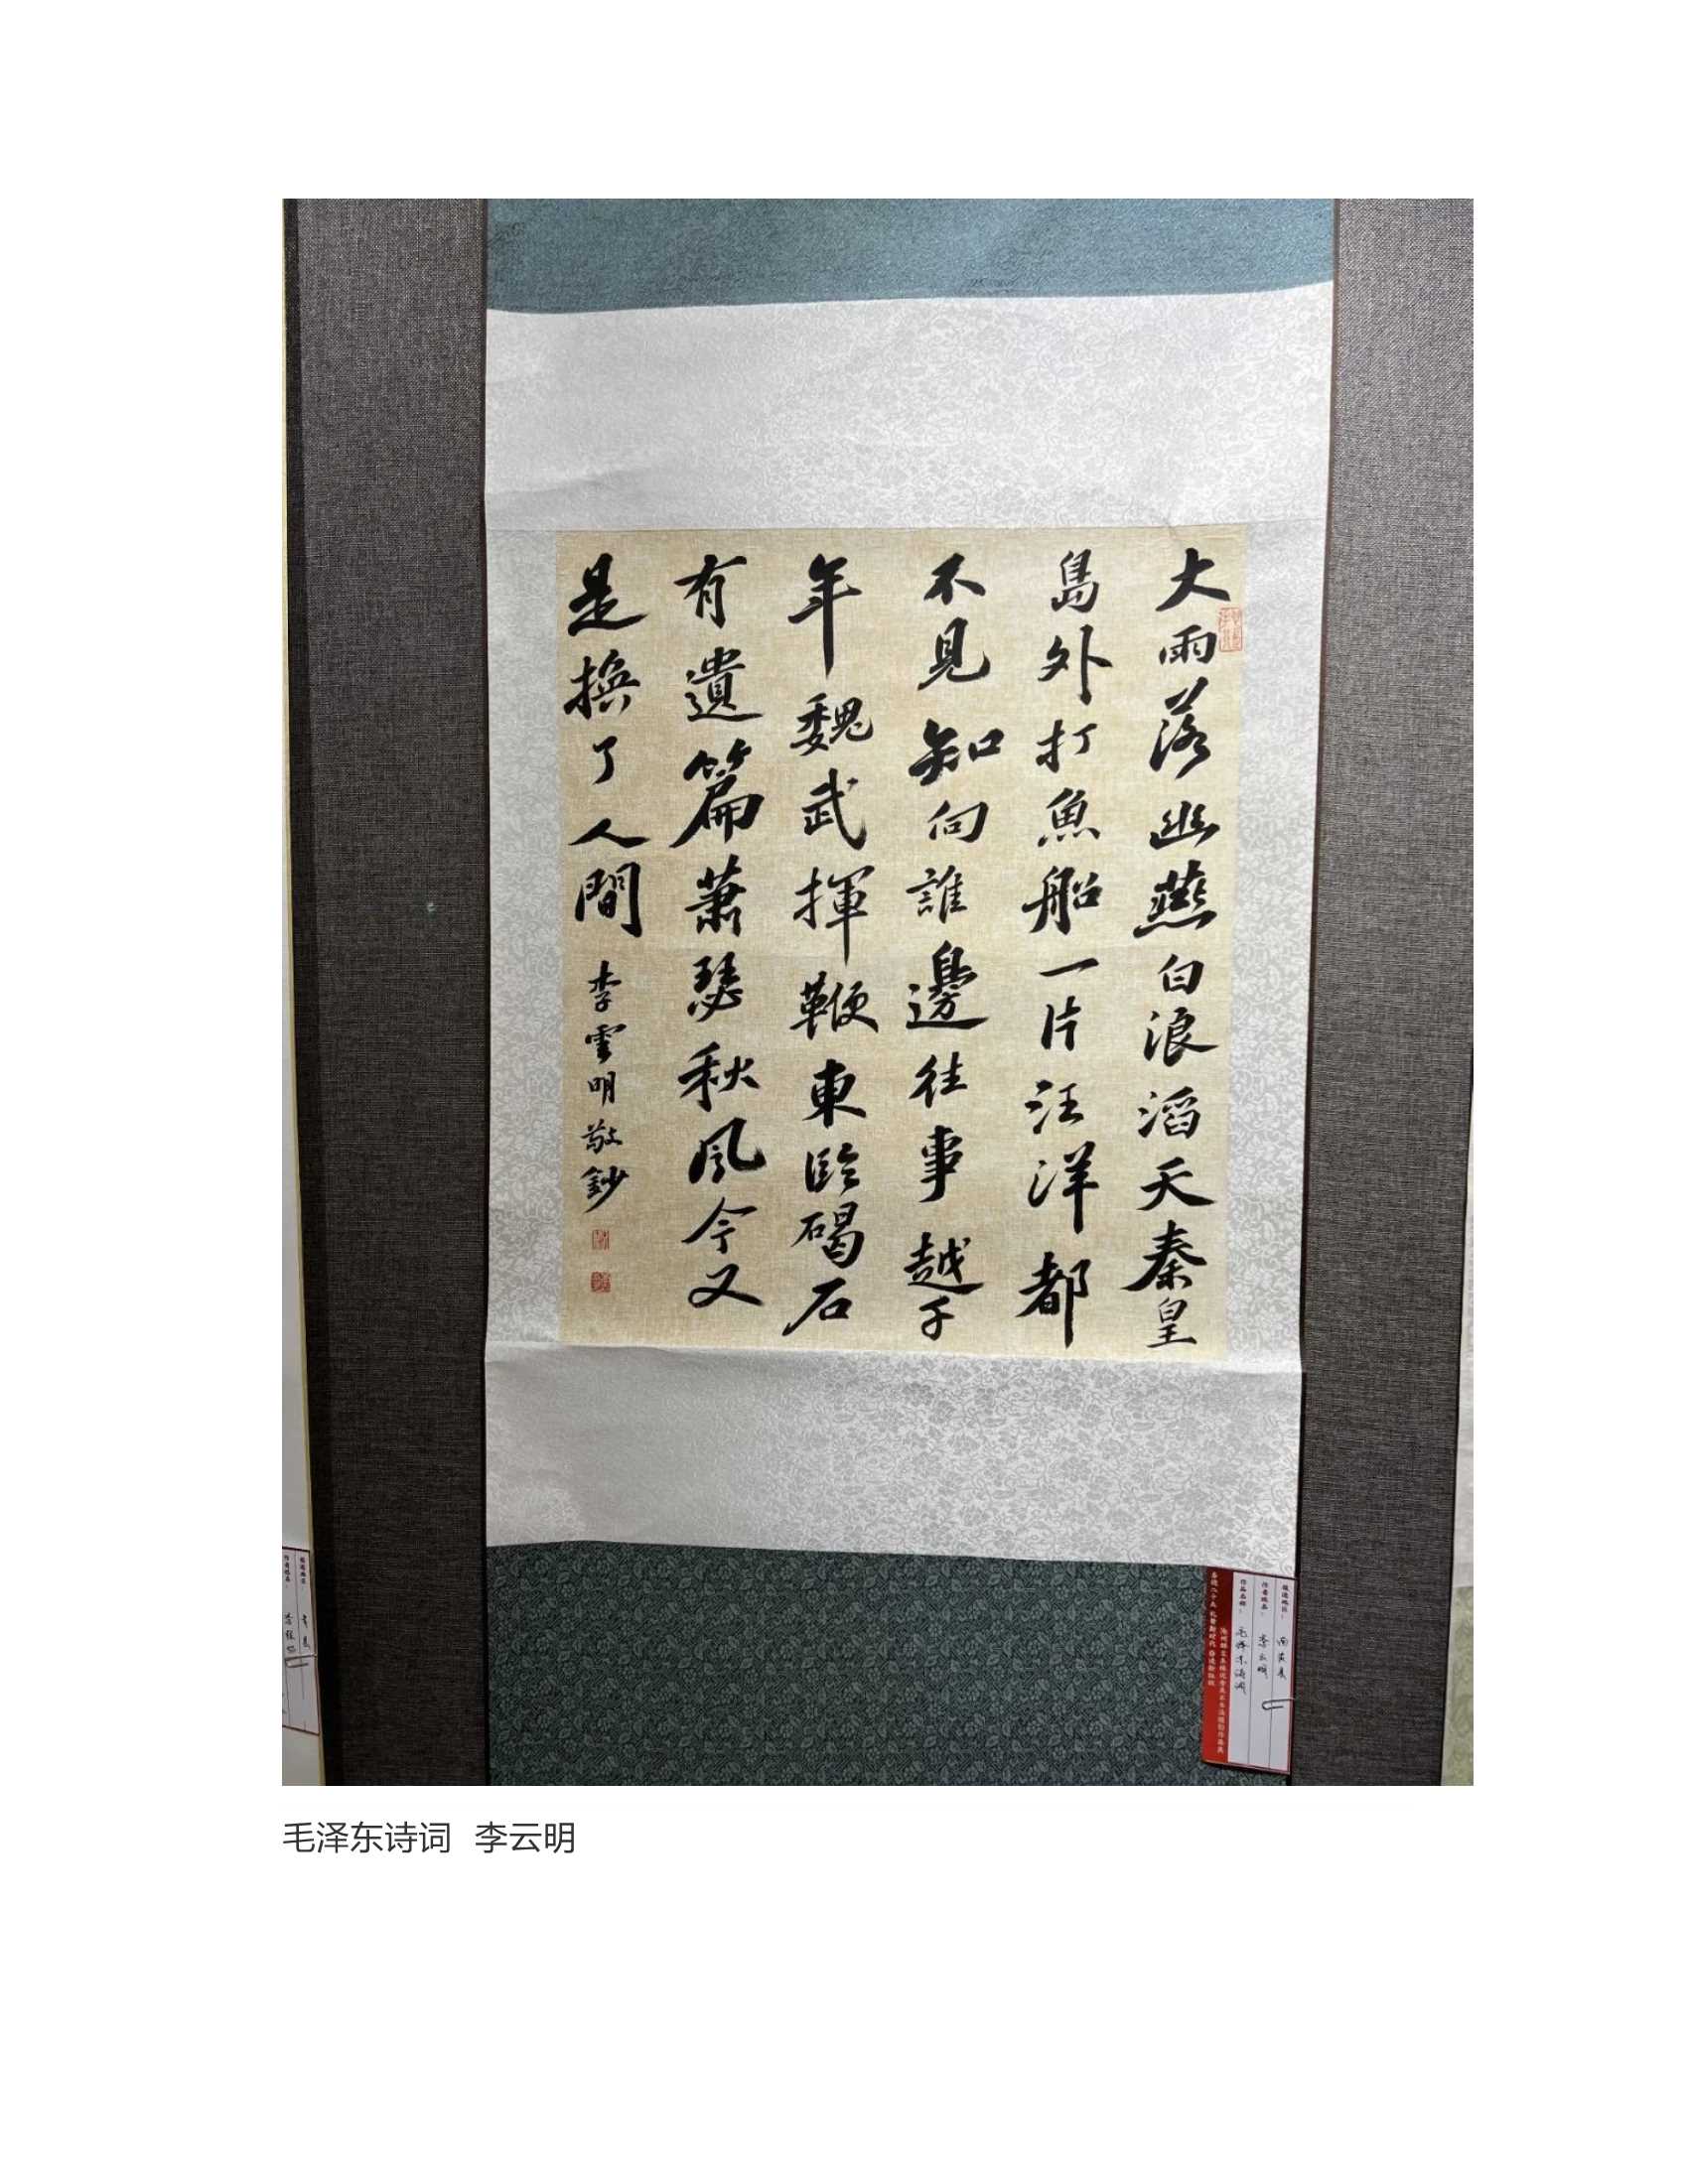 大雨落幽燕白浪滔天秦皇
島外打魚船一片汪洋都
不見知向誰邊往事越千
年魏武揮鞭東臨碣石
有遺篇蕭瑟秋風今又
是換了人間
李雲明敬鈔
报送地区：
作者姓名：李云明
作品名称：毛泽东诗词
毛泽东诗词 李云明